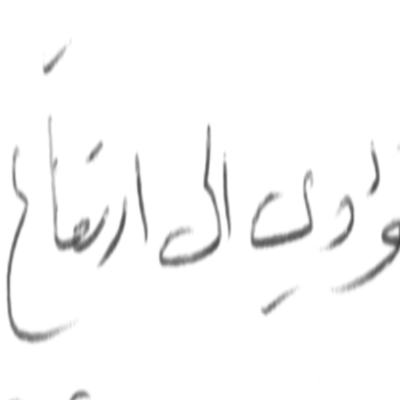 ؤدي الى ارتفاع